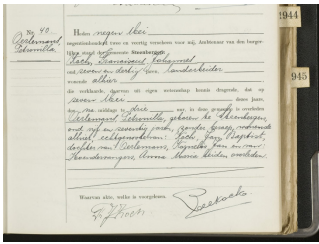 1944
945
No. 40
Oerlemans,
Petronella
Heden negen Mei
negentienhonderd twee en veertig verscheen voor mij, Ambtenaar van den burger-
lijken stand der gemeente Steenbergen:
Franciscus Johannes
oud zeven en dertig jaar, landarbeider
wonende alhier
die verklaarde, daarvan uit eigen wetenschap kennis dragende, dat op
zeven Mei dezes jaars,
des na middags te drie uur, in deze gemeente is overleden
Oerlemans Petronella, geboren te Steenbergen,
oud vijf en zeventig jaren, zonder beroep, wonende
alhier, echtgenoote van: Jan Baptist,
dochter van: Oerlemans, Cornelis Jan en van:
Anna Maria beiden overleden
Waarvan akte, welke is voorgelezen.